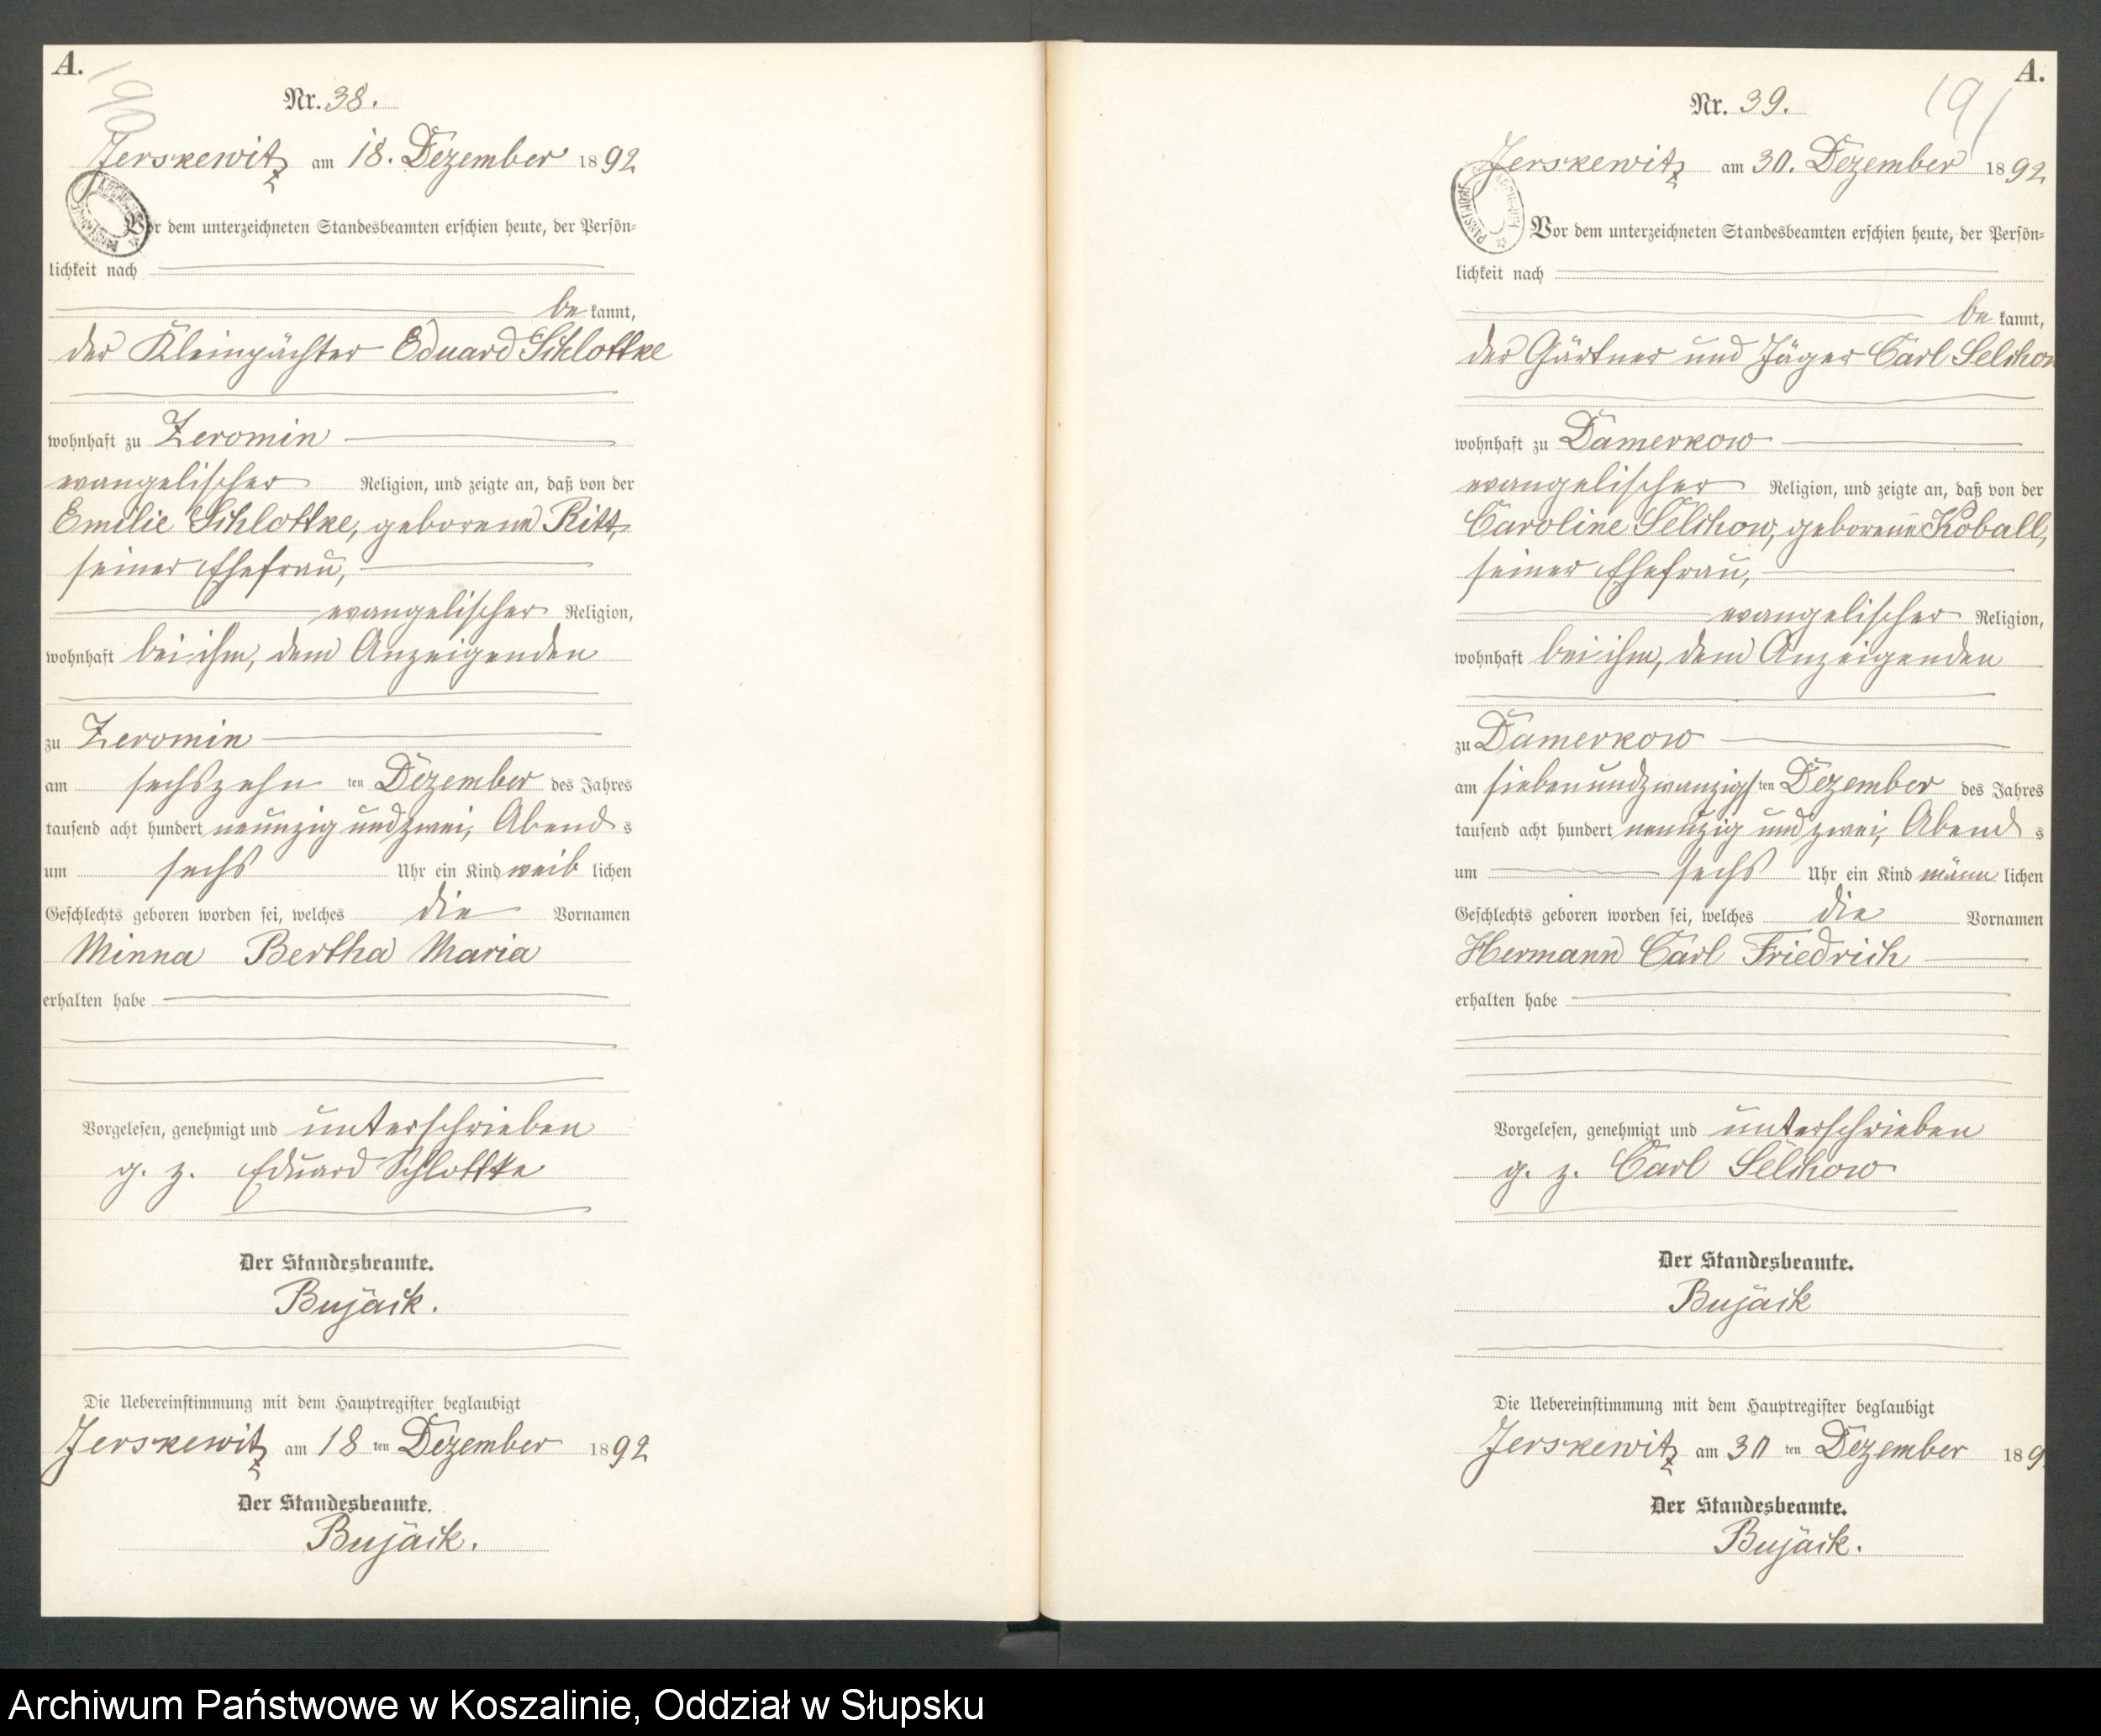 A.
190
Nr. 38.
Jerskewitz am 18. Dezember 1892
Vor dem unterzeichneten Standesbeamten erschien heute, der Persön-
lichkeit nach
be kannt,
der Kleinpächter Eduard Schlottke
wohnhaft zu Zeromin
evangelischer Religion, und zeigte an, daß von der
Emilie Schlottke, geborene Ritt,
seiner Ehefrau,
evangelischer Religion,
wohnhaft bei ihm, dem Anzeigenden
zu Zeromin
am sechszehn ten Dezember des Jahres
tausend acht hundert neunzig und zwei, Abend s
um sechs Uhr ein Kind weib lichen
Geschlechts geboren worden sei, welches die Vornamen
Minna Bertha Maria
erhalten habe
Vorgelesen, genehmigt und unterschrieben
g. z. Eduard Schlottke
Der Standesbeamte.
Bujack.
Die Uebereinstimmung mit dem Hauptregister beglaubigt
Jerskewitz am 18 ten Dezember 1892
Der Standesbeamte.
Bujack.
A.
191
Nr. 39.
Jerskewitz am 30. Dezember 1892
Vor dem unterzeichneten Standesbeamten erschien heute, der Persön-
lichkeit nach
be kannt,
der Gärtner und Jäger Carl Selchow
wohnhaft zu Damerkow
evangelischer Religion, und zeigte an, daß von der
Caroline Selchow, geborene Koball,
seiner Ehefrau,
evangelischer Religion,
wohnhaft bei ihm, dem Anzeigenden
zu Damerkow
am siebenundzwanzigs ten Dezember des Jahres
tausend acht hundert neunzig und zwei, Abend s
um sechs Uhr ein Kind männ lichen
Geschlechts geboren worden sei, welches die Vornamen
Hermann Carl Friedrich
erhalten habe
Vorgelesen, genehmigt und unterschrieben
g. z. Carl Selchow
Der Standesbeamte.
Bujack
Die Uebereinstimmung mit dem Hauptregister beglaubigt
Jerskewitz am 30 ten Dezember 189
Der Standesbeamte.
Bujack.
Archiwum Państwowe w Koszalinie, Oddział w Słupsku